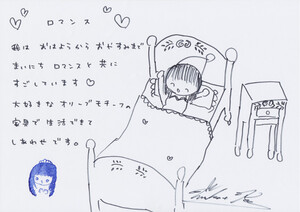 ロマンス
私は おはようから おやすみまで
まいにち ロマンスと 共に
すごしています
大好きな オリーブモチーフの
家具で 生活できて
しあわせ です。